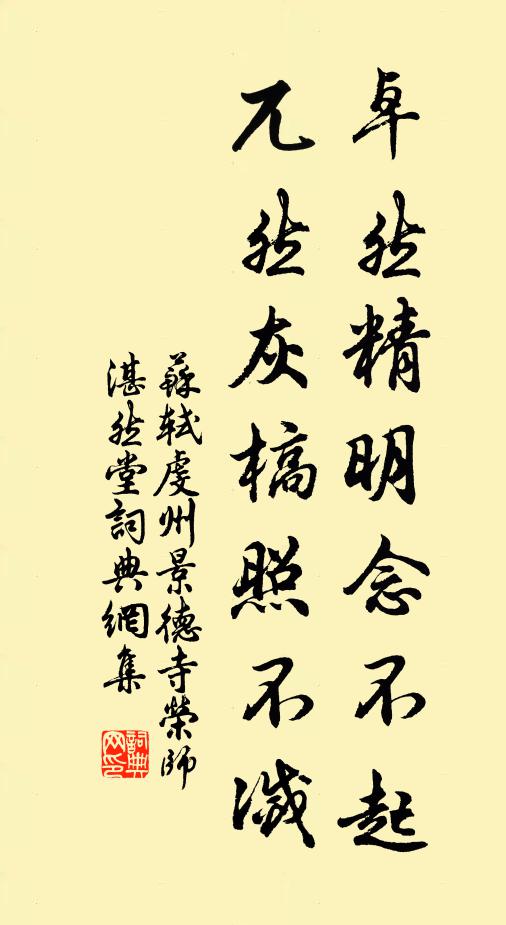 卓然精明念不起
兀然灰槁照不滅
蘇軾虔州景德寺榮師
湛然堂詞典網集
詞典
网印